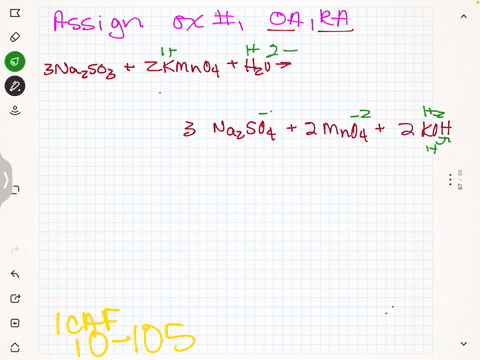 Assign ox #, OA, RA
1+ 1+ 2-
3Na₂SO₃ + 2KMnO₄ + H₂O →
-2 1+ -2
3 Na₂SO₄ + 2MnO₄ + 2 KOH
1+
ICAF
10→105